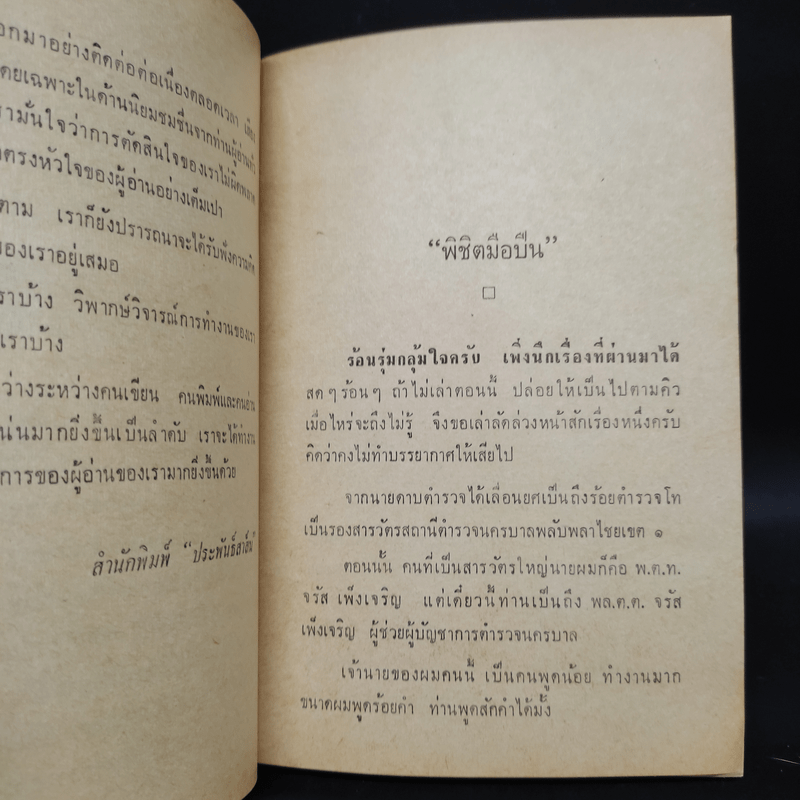 อกมาอย่างติดต่อต่อเนื่องตลอดเวลา
ดยเฉพาะในด้านนิยมชมชื่นจากท่านผู้อ่านทั่ว
รามั่นใจว่าการตัดสินใจของเราไม่ผิดพลาด
ตรงหัวใจของผู้อ่านอย่างเต็มเปา
ตาม เราก็ยังปรารถนาจะได้รับฟังความคิด
ของเราอยู่เสมอ
ราบ้าง วิพากษ์วิจารณ์การทำงานของเรา
เราบ้าง
ว่างระหว่างคนเขียน คนพิมพ์และคนอ่าน
น่นมากยิ่งขึ้นเป็นลำดับ เราจะได้ทำงาน
การของผู้อ่านของเรามากยิ่งขึ้นด้วย
สำนักพิมพ์ “ประพันธ์สาส์น”
“พิชิตมือปืน”
ร้อนรุ่มกลุ้มใจครับ เพิ่งนึกเรื่องที่ผ่านมาได้
สดๆร้อนๆ ถ้าไม่เล่าตอนนี้ ปล่อยให้เป็นไปตามคิว
เมื่อไหร่จะถึงไม่รู้ จึงขอเล่าลัดล่วงหน้าสักเรื่องหนึ่งครับ
คิดว่าคงไม่ทำบรรยากาศให้เสียไป
จากนายดาบตำรวจได้เลื่อนยศเป็นถึงร้อยตำรวจโท
เป็นรองสารวัตรสถานีตำรวจนครบาลพลับพลาไชยเขต ๑
ตอนนั้น คนที่เป็นสารวัตรใหญ่นายผมก็คือ พ.ต.ท.
จรัส เพ็งเจริญ แต่เดี๋ยวนี้ท่านเป็นถึง พล.ต.ต. จรัส
เพ็งเจริญ ผู้ช่วยผู้บัญชาการตำรวจนครบาล
เจ้านายของผมคนนี้ เป็นคนพูดน้อย ทำงานมาก
ขนาดผมพูดร้อยคำ ท่านพูดสักคำได้มั้ง